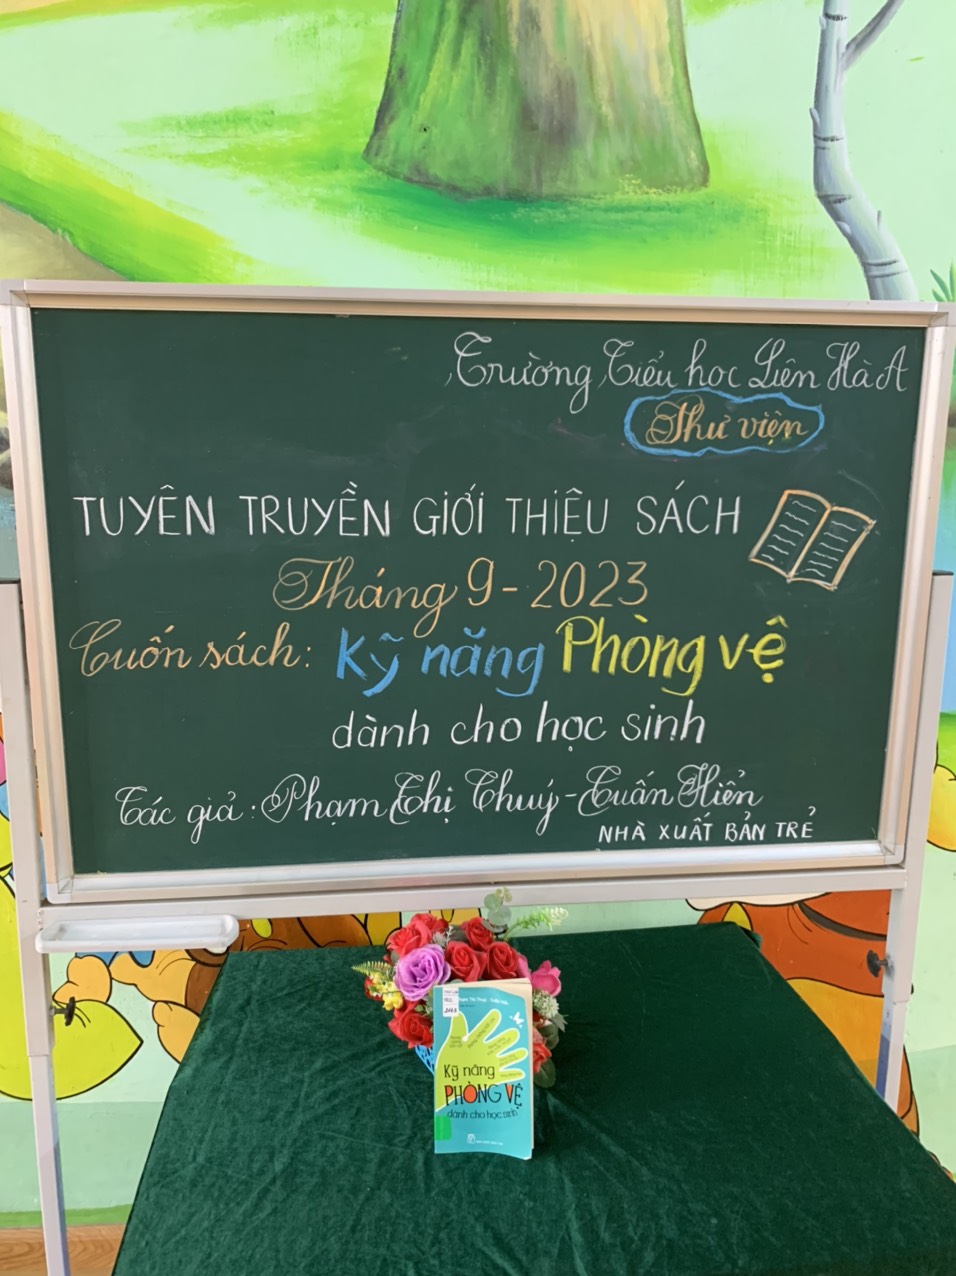 Trường Tiểu học Liên Hà A
Thư viện
TUYÊN TRUYỀN GIỚI THIỆU SÁCH
Tháng 9-2023
Cuốn sách: Kỹ năng Phòng vệ
dành cho học sinh
Tác giả: Phạm Thị Thuý-Tuấn Hiển
NHÀ XUẤT BẢN TRẺ
Kỹ năng
PHÒNG VỆ
dành cho học sinh